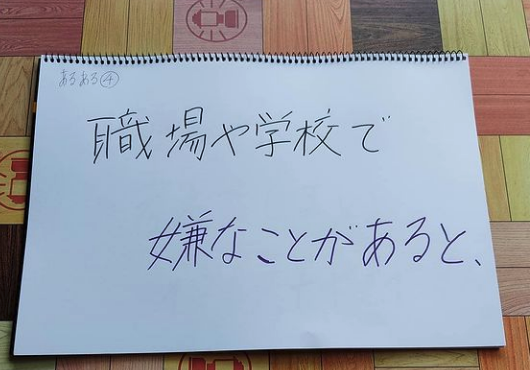 あるある④
職場や学校で
嫌なことがあると、